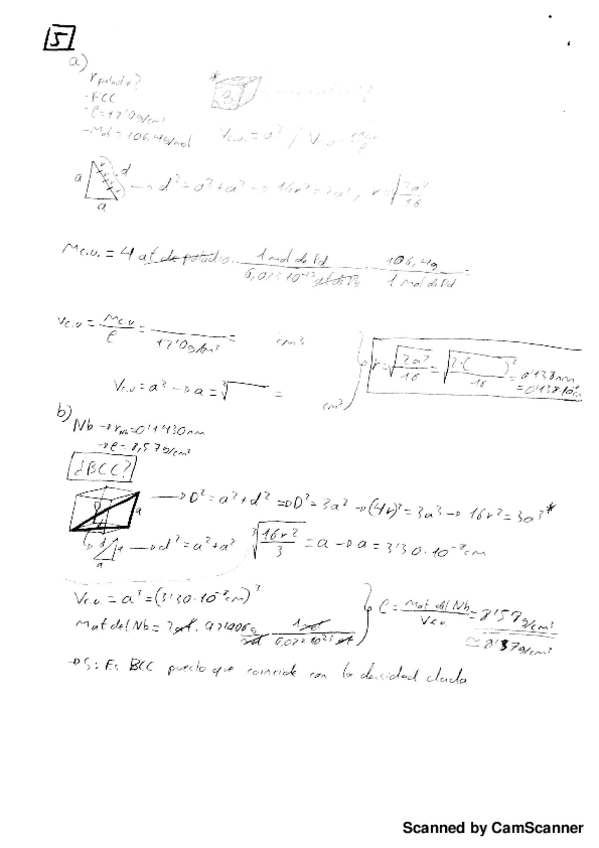 5
a)
r paladio?
-FCC
-ρ=12'0g/cm³
-Mol=106,4g/mol
Vc.u.=a³ /
a d a
→ d²=a²+a² → 16r²=2a², r=√2a²/16
Mc.u.=4 at de paladio · 1 mol de Pd / 6,023·10⁻²³ · 106,4g / 1 mol de Pd =
Vc.u=Mc.u/ρ= /12'0g/cm³= cm³
Vc.u=a³→a=∛ = cm
r=√2a²/16=√2·( )²/16=0'138nm
b)
Nb→ =0'1430nm
→ρ=8,57g/cm³
¿BCC?
→D²=a²+d² ⇒D²=3a²→(4r)²=3a³→16r²=3a³*
→d²=a²+a² ∛16r²/3=a→a=3'30·10⁻⁸cm
Vc.u.=a³=(3'30·10⁻⁸cm)³
Mat del Nb=2at. · 1mol / 6,022·10²³ at
ρ=Mat del Nb/Vc.u=8'58g/cm³
≃8'57g/cm³
→S: Es BCC puesto que coincide con la densidad dada
Scanned by CamScanner